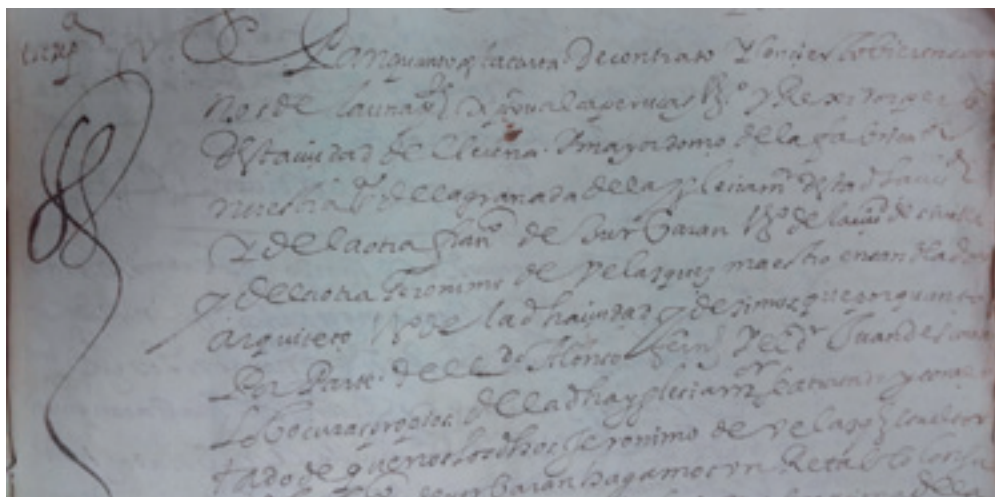 V. Sepan quantos la carta de contrato y concierto bieren como
nos de la una parte xpoual caperucas Vº y Rexidor per
desta ciudad de llerena. y mayordomo de la fabrica de
nuestra Sª de la granada de la yglesia mor desta dha ciud
y de la otra franco de Surbaran Vº de la ciud de seuilla
y de la otra Jeronimo de Velasquez maestro ensanblador
arquiteto Vº de la dha ciudad y desimos que por quanto
Por Parte. del Ldo. Alonso y el Ldo Juan
Lobo curas propios. de la dha yglesia mor se a tratado y
tado de que nos los dhos Jeronimo de Velasqz
de surbaran hagamos un Retablo